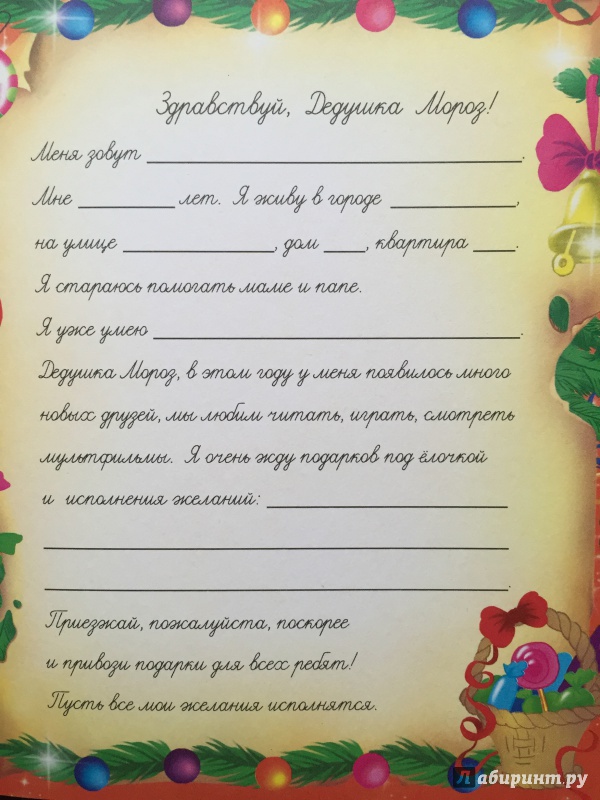 Здравствуй, Дедушка Мороз!
Меня зовут ______________________________.
Мне ________ лет. Я живу в городе __________,
на улице ____________, дом ___, квартира ___.
Я стараюсь помогать маме и папе.
Я уже умею ______________________________.
Дедушка Мороз, в этом году у меня появилось много
новых друзей, мы любим читать, играть, смотреть
мультфильмы. Я очень жду подарков под ёлочкой
и исполнения желаний: ____________________
________________________________________
________________________________________.
Приезжай, пожалуйста, поскорее
и привози подарки для всех ребят!
Пусть все мои желания исполнятся.
Лабиринт.ру